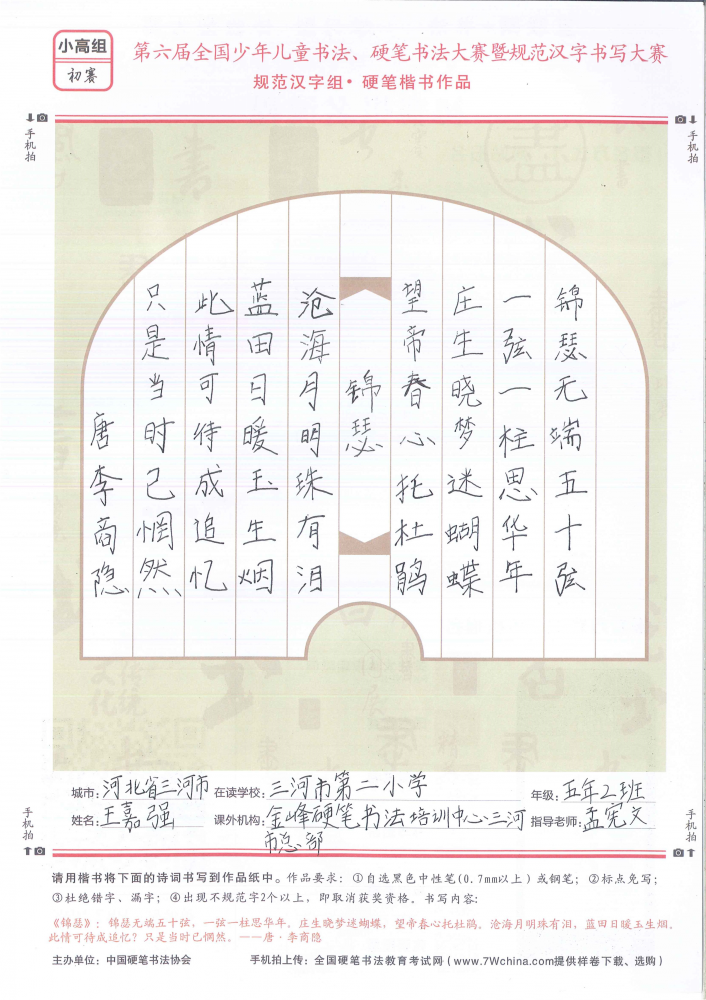 小高组
初赛
第六届全国少年儿童书法、硬笔书法大赛暨规范汉字书写大赛
规范汉字组·硬笔楷书作品
手机拍
手机拍
锦瑟无端五十弦
一弦一柱思华年
庄生晓梦迷蝴蝶
望帝春心托杜鹃
锦瑟
沧海月明珠有泪
蓝田日暖玉生烟
此情可待成追忆
只是当时已惘然
唐李商隐
城市:河北省三河市 在读学校:三河市第二小学 年级:五年2班
姓名:王嘉强 课外机构:金峰硬笔书法培训中心三河市总部 指导老师:孟宪文
手机拍
手机拍
请用楷书将下面的诗词书写到作品纸中。作品要求:①自选黑色中性笔(0.7mm以上)或钢笔;②标点免写;
③杜绝错字、漏字;④出现不规范字2个以上,即取消获奖资格。书写内容:
《锦瑟》:锦瑟无端五十弦,一弦一柱思华年。庄生晓梦迷蝴蝶,望帝春心托杜鹃。沧海月明珠有泪,蓝田日暖玉生烟。
此情可待成追忆?只是当时已惘然。——唐·李商隐
主办单位:中国硬笔书法协会 手机拍上传:全国硬笔书法教育考试网(www.7Wchina.com提供样卷下载、选购)